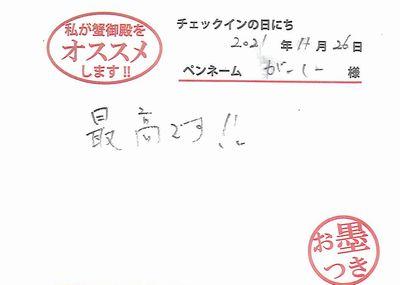 私が蟹御殿を
オススメ
します!!
チェックインの日にち
2021年11月26日
ペンネーム がーしー 様
最高です!!
お墨
つき